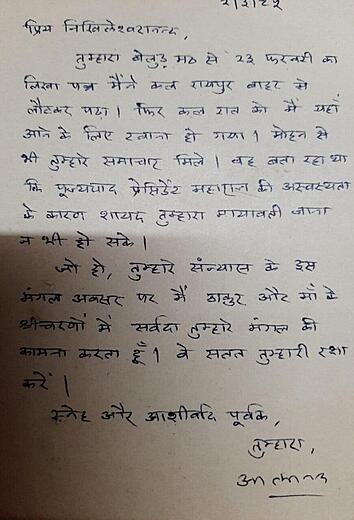 २/३/८५
प्रिय निखिलेश्वरानन्द,
तुम्हारा बेलुड़ मठ से २३ फरवरी का
लिखा पत्र मैंने कल रायपुर बाहर से
लौटकर पढ़ा। फिर कल रात को मैं यहाँ
आने के लिए रवाना हो गया। मोहन से
भी तुम्हारे समाचार मिले। वह बता रहा था
कि पूज्यपाद प्रेसिडेंट महाराज की अस्वस्थता
के कारण शायद तुम्हारा मायावती जाना
न भी हो सके।
जो हो, तुम्हारे संन्यास के इस
मंगल अवसर पर मैं ठाकुर और माँ के
श्रीचरणों में सर्वदा तुम्हारे मंगल की
कामना करता हूँ। वे सतत तुम्हारी रक्षा
करें।
स्नेह और आशीर्वाद पूर्वक,
तुम्हारा,